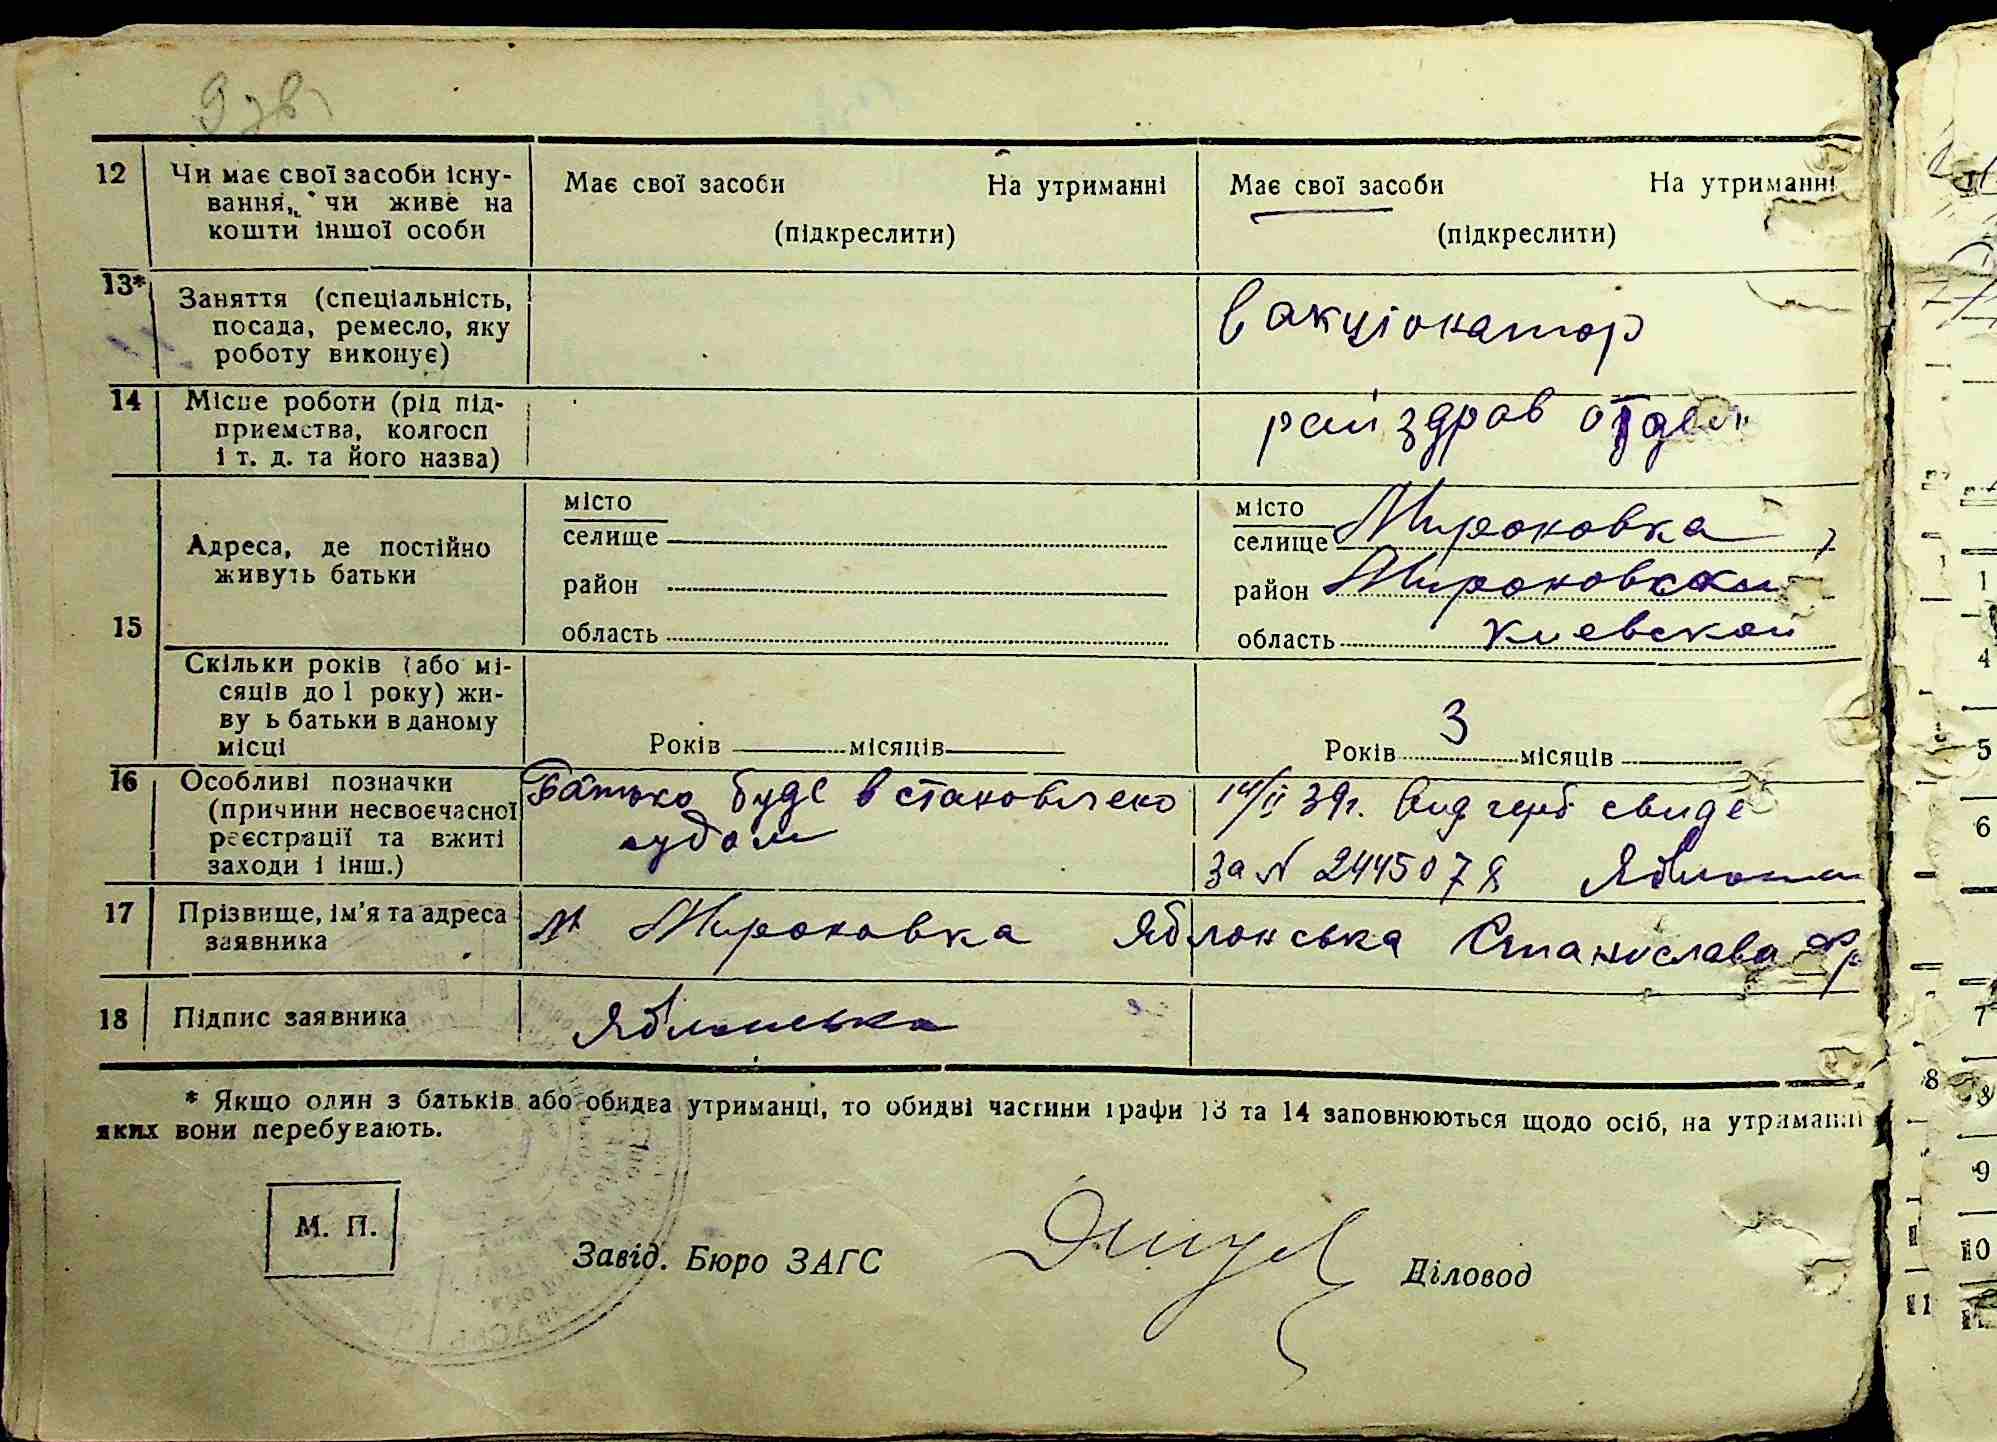 12 Чи має свої засоби існу-
вання, чи живе на
кошти іншої особи
Має свої засоби На утриманні
(підкреслити)
Має свої засоби На утриманні
(підкреслити)
13* Заняття (спеціальність,
посада, ремесло, яку
роботу виконує)
вакціонатор
14 Місце роботи (рід під-
приємства, колгосп
і т. д. та його назва)
райздрав отдел
15 Адреса, де постійно
живуть батьки
місто
селище
район
область
місто
селище Мироновка
район Мироновский
область Киевской
Скільки років (або мі-
сяців до 1 року) жи-
ву ь батьки в даному
місці
Років місяців
Років 3 місяців
16 Особливі позначки
(причини несвоєчасної
реєстрації та вжиті
заходи і інш.)
Батько буде встановлено
судом
14/II 39г. Выд герб свиде
за N 2445078
17 Прізвище, ім'я та адреса
заявника
м Мироновка Яблонська Станислава Фр
18 Підпис заявника
Яблонська
* Якщо один з батьків або обидва утриманці, то обидві частини графи 13 та 14 заповнюються щодо осіб, на утриманні
яких вони перебувають.
М. П.
Завід. Бюро ЗАГС
Діловод
4
5
6
7
8
9
10
11